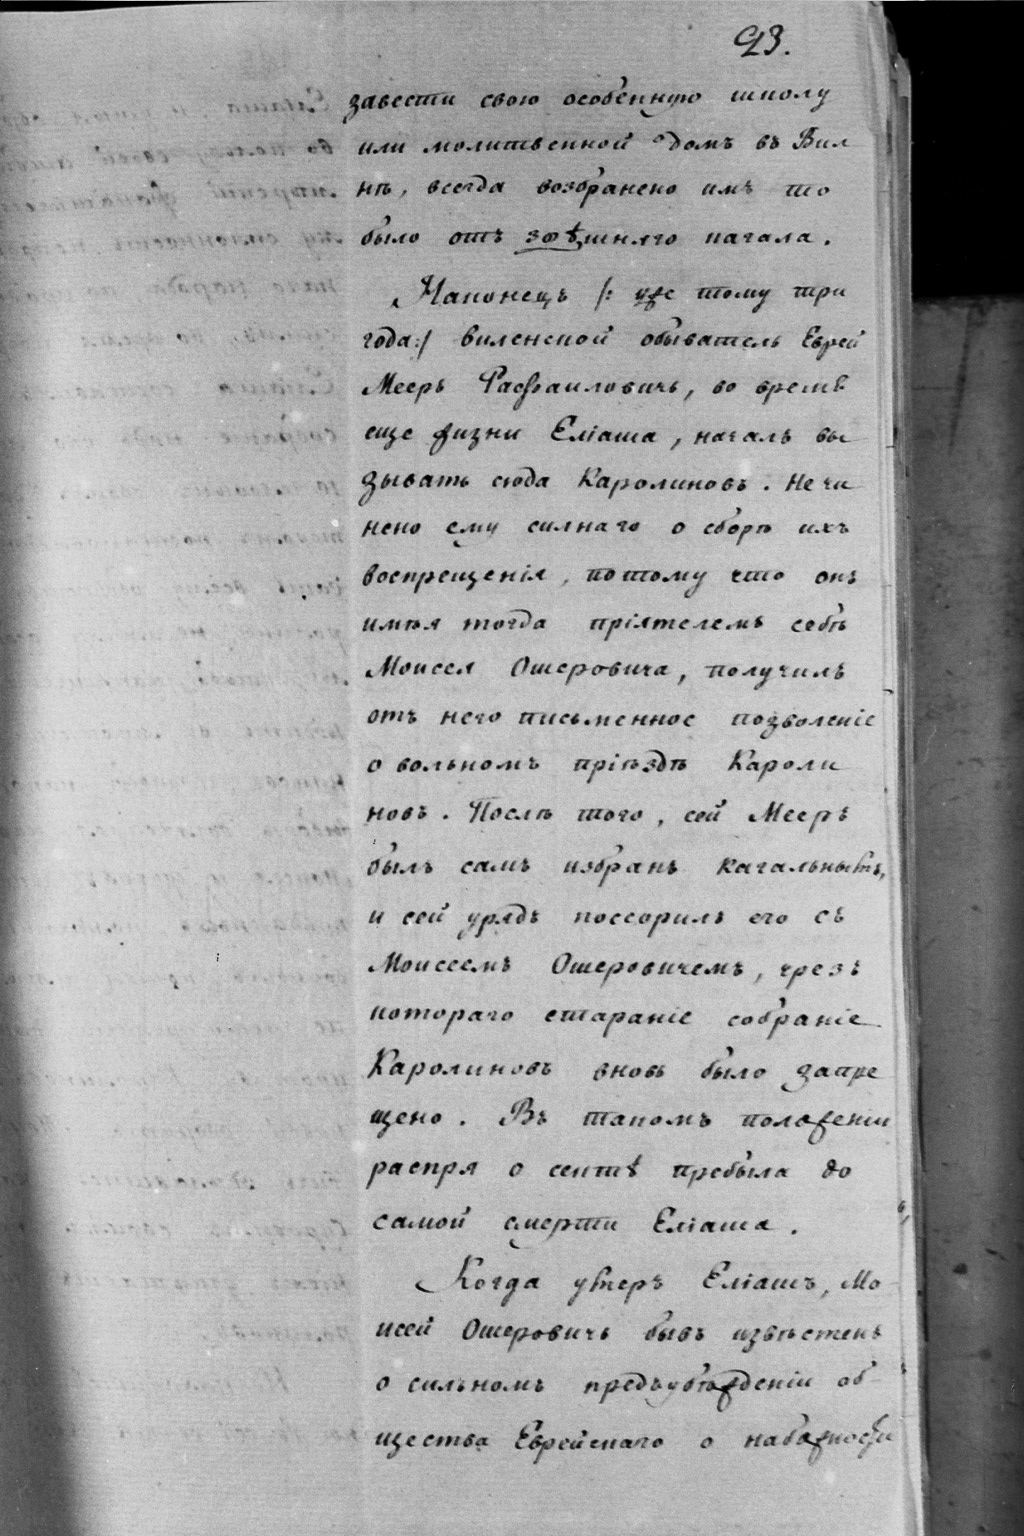 93.
завести свою особенную школу
или молитвенной домъ въ Вил
нѣ, всегда возбранено имъ то
было отъ здѣшняго начала.
Наконецъ /: уже тому три
года :/ виленской обыватель Еврей
Мееръ Рафаиловичь, во время
еще жизни Еліаша, началъ вы
зывать сюда Каролиновъ. Не чи
нено ему силнаго о сборѣ ихъ
воспрещенія, потому что онъ
имѣя тогда пріятелемъ себѣ
Моисея Ошеровича, получилъ
отъ него письменное позволеніе
о вольномъ пріѣздѣ Кароли
новъ. Послѣ того, сей Мееръ
былъ самъ избранъ кагальнымъ,
и сей урядъ поссорилъ его съ
Моисеемъ Ошеровичемъ, чрезъ
котораго стараніе собраніе
Каролиновъ вновь было запре
щено. Въ такомъ положеніи
распря о сектѣ пребыла до
самой смерти Еліаша.
Когда умеръ Еліашъ, Мо-
исей Ошеровичь бывъ извѣстенъ
о сильномъ предъубѣжденіи об-
щества Еврейскаго о набожности